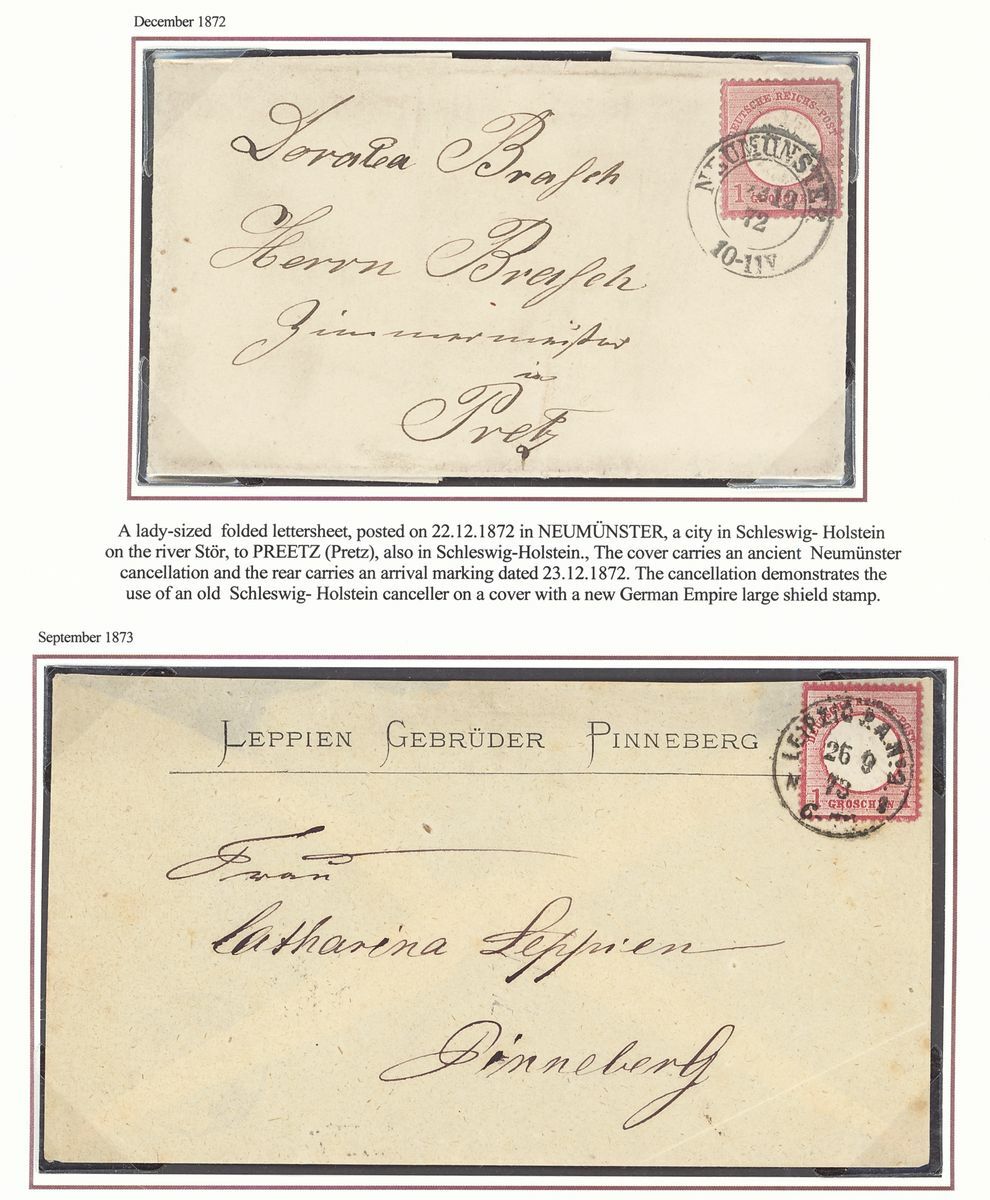 December 1872
DEUTSCHE REICHS-POST
1 GROSCHEN
NEUMÜNSTER
12
72
10-11V
Doratea Brasch
Herrn Brasch
Zimmermeister
in
Pretz
A lady-sized folded lettersheet, posted on 22.12.1872 in NEUMÜNSTER, a city in Schleswig- Holstein
on the river Stör, to PREETZ (Pretz), also in Schleswig-Holstein., The cover carries an ancient Neumünster
cancellation and the rear carries an arrival marking dated 23.12.1872. The cancellation demonstrates the
use of an old Schleswig- Holstein canceller on a cover with a new German Empire large shield stamp.
September 1873
LEPPIEN GEBRÜDER PINNEBERG
LEIPZIG P.A. No 9
26 9
73
1 GROSCHEN
Frau
Catharina Leppien
Pinneberg